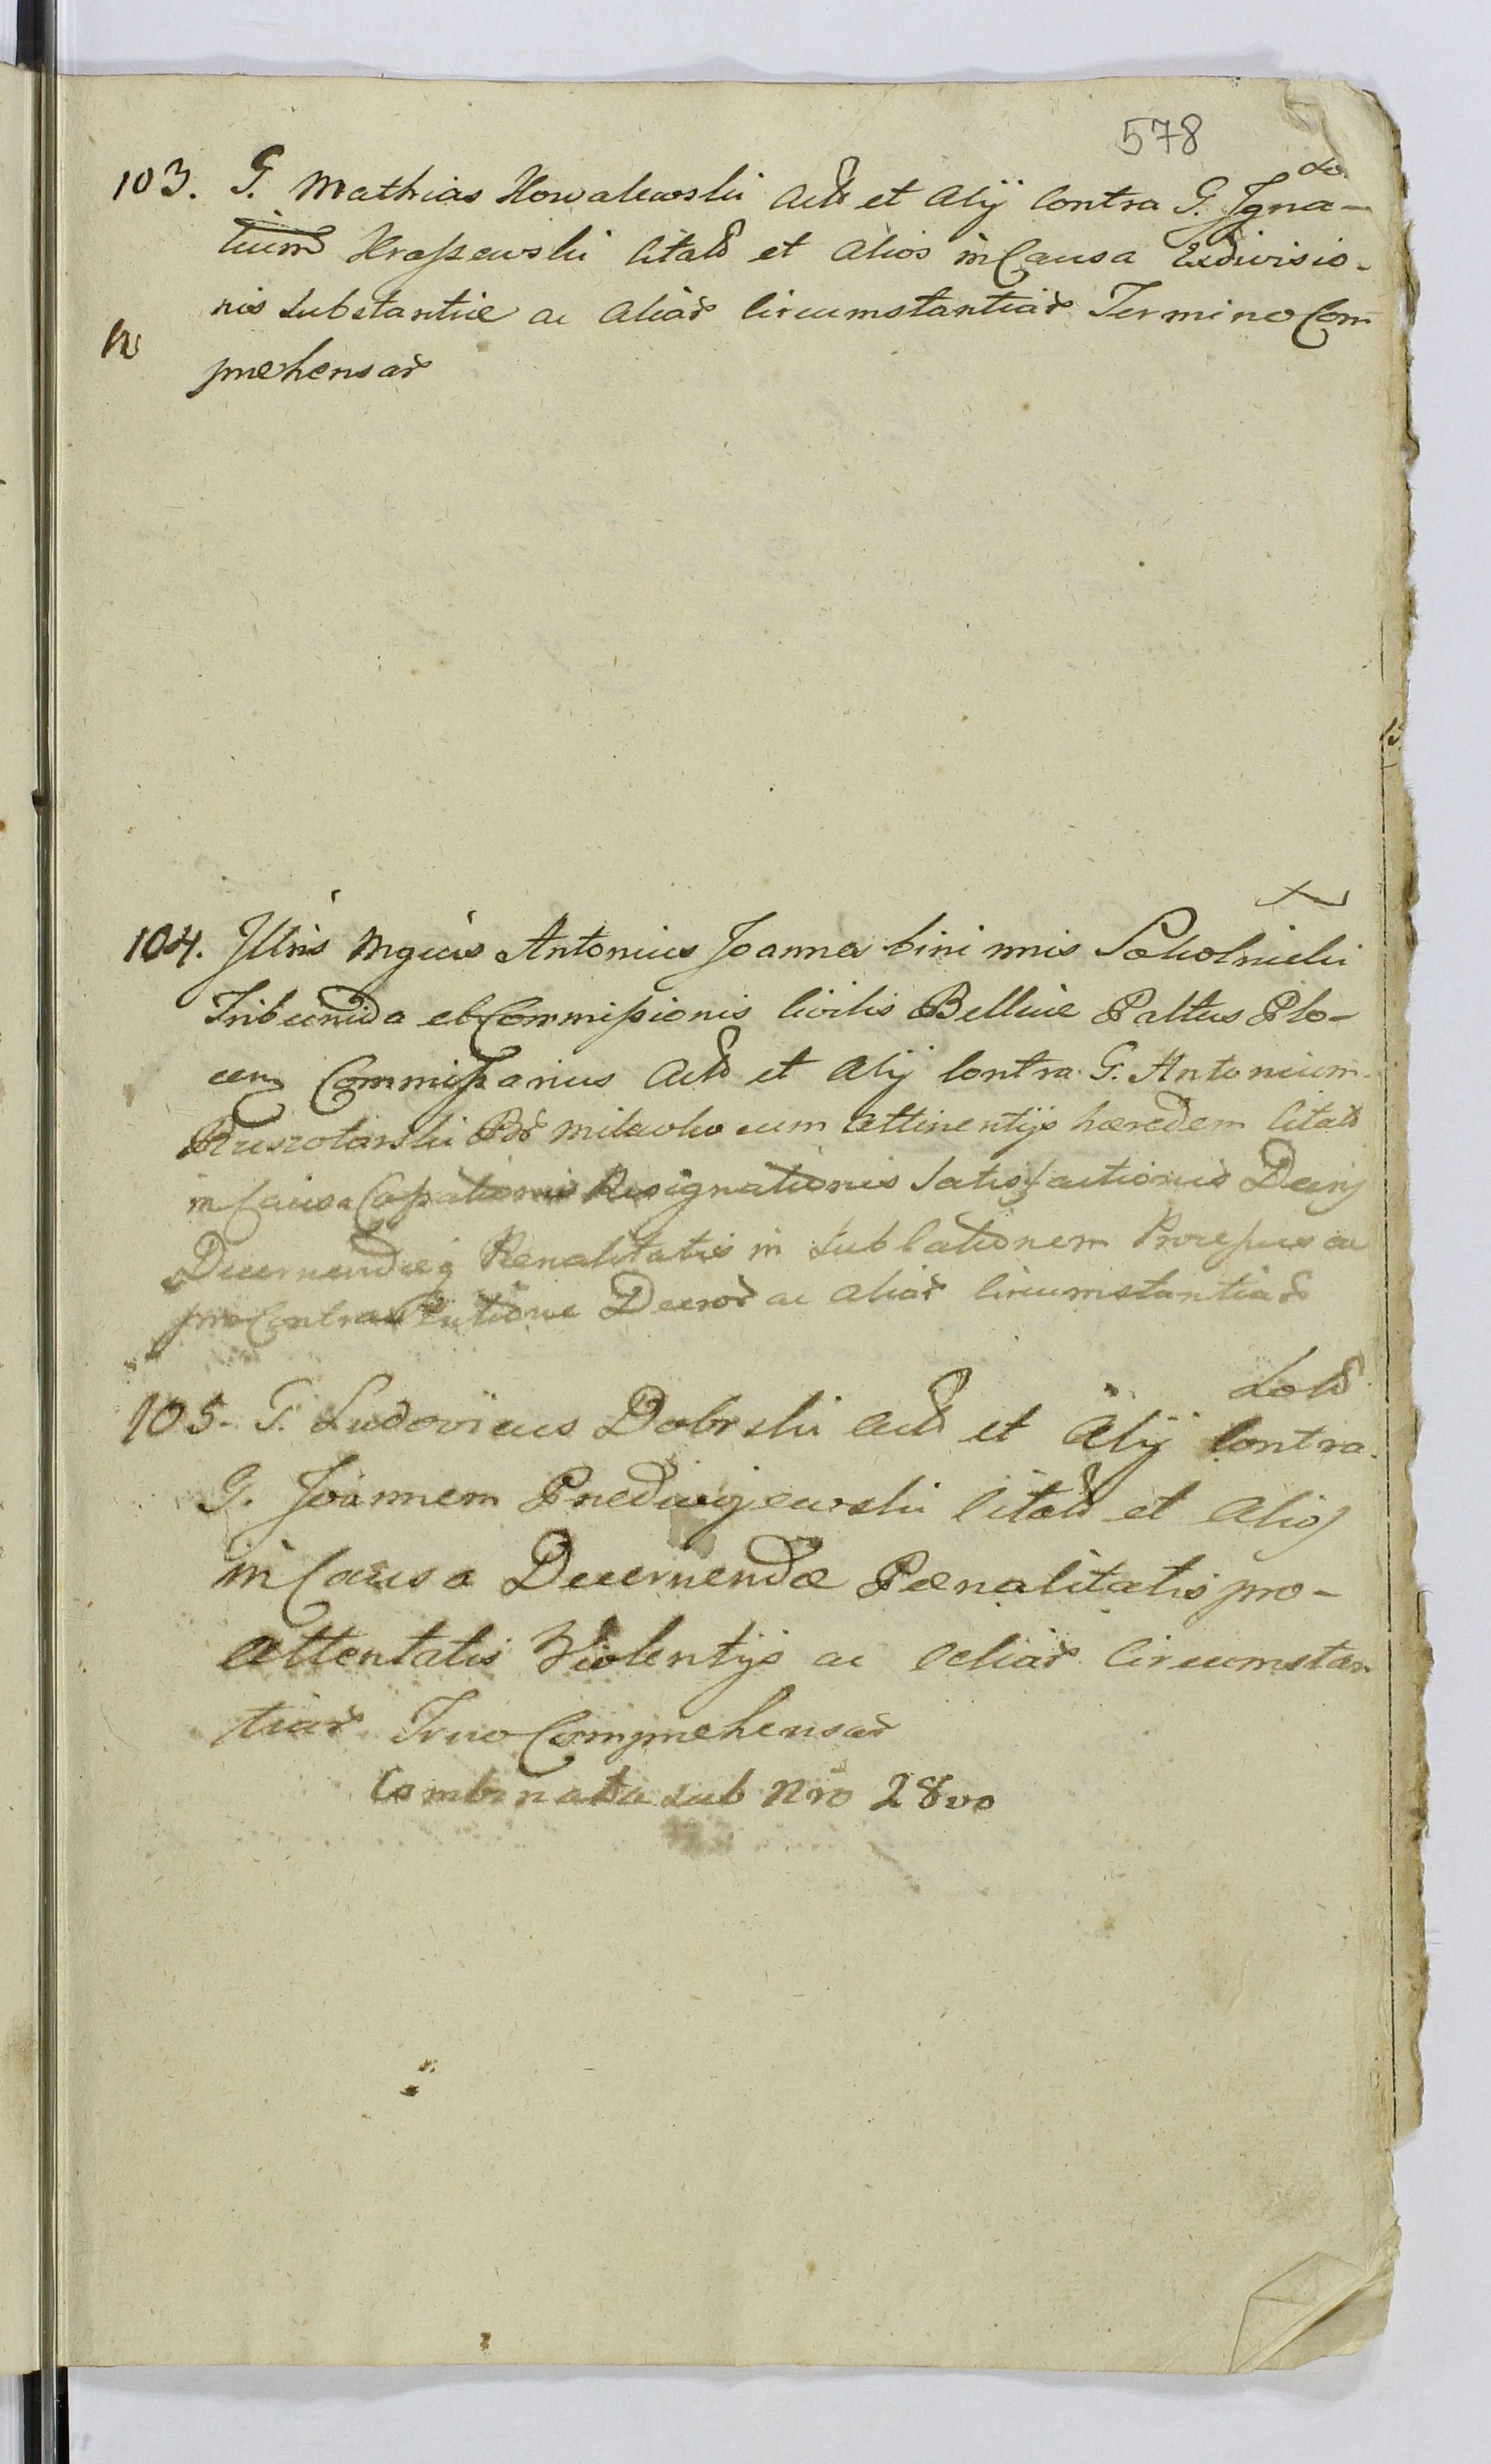 578
103. G. Mathias Kowalewski Actt et Alij Contra G. Igna-
tium Kraszewski Citatt et Alios in Causa Exdivisio-
nis Substantiæ ac Aliar Circumstantiar Termino Com
præhensar
104. Illris Mgcus Antonius Joannes bini nnis Sokolnicki
et Commissionis Civilis Bellicæ Pallus Plo-
cen Commissarius Actt et Alij Contra G. Antonium
Bor Milewko cum Attinentijs hæredem Citatt
in Causa Cassationis Resignationis Satisfactionis Decrij
Decernendæq Pænalitatis in Sublationem Processus ac
pro Contraventione Decror ac Aliar Circumstantiar
Lott
105. G. Ludovicus Dobrski Actt et Alij Contra
G. Joannem Citatt et Alios
in Causa Decernendæ Pænalitatis pro-
Attentatis Violentijs ac Aliar Circumstan
tiar Trno Compræhensar
Combinata sub Nro 28vo